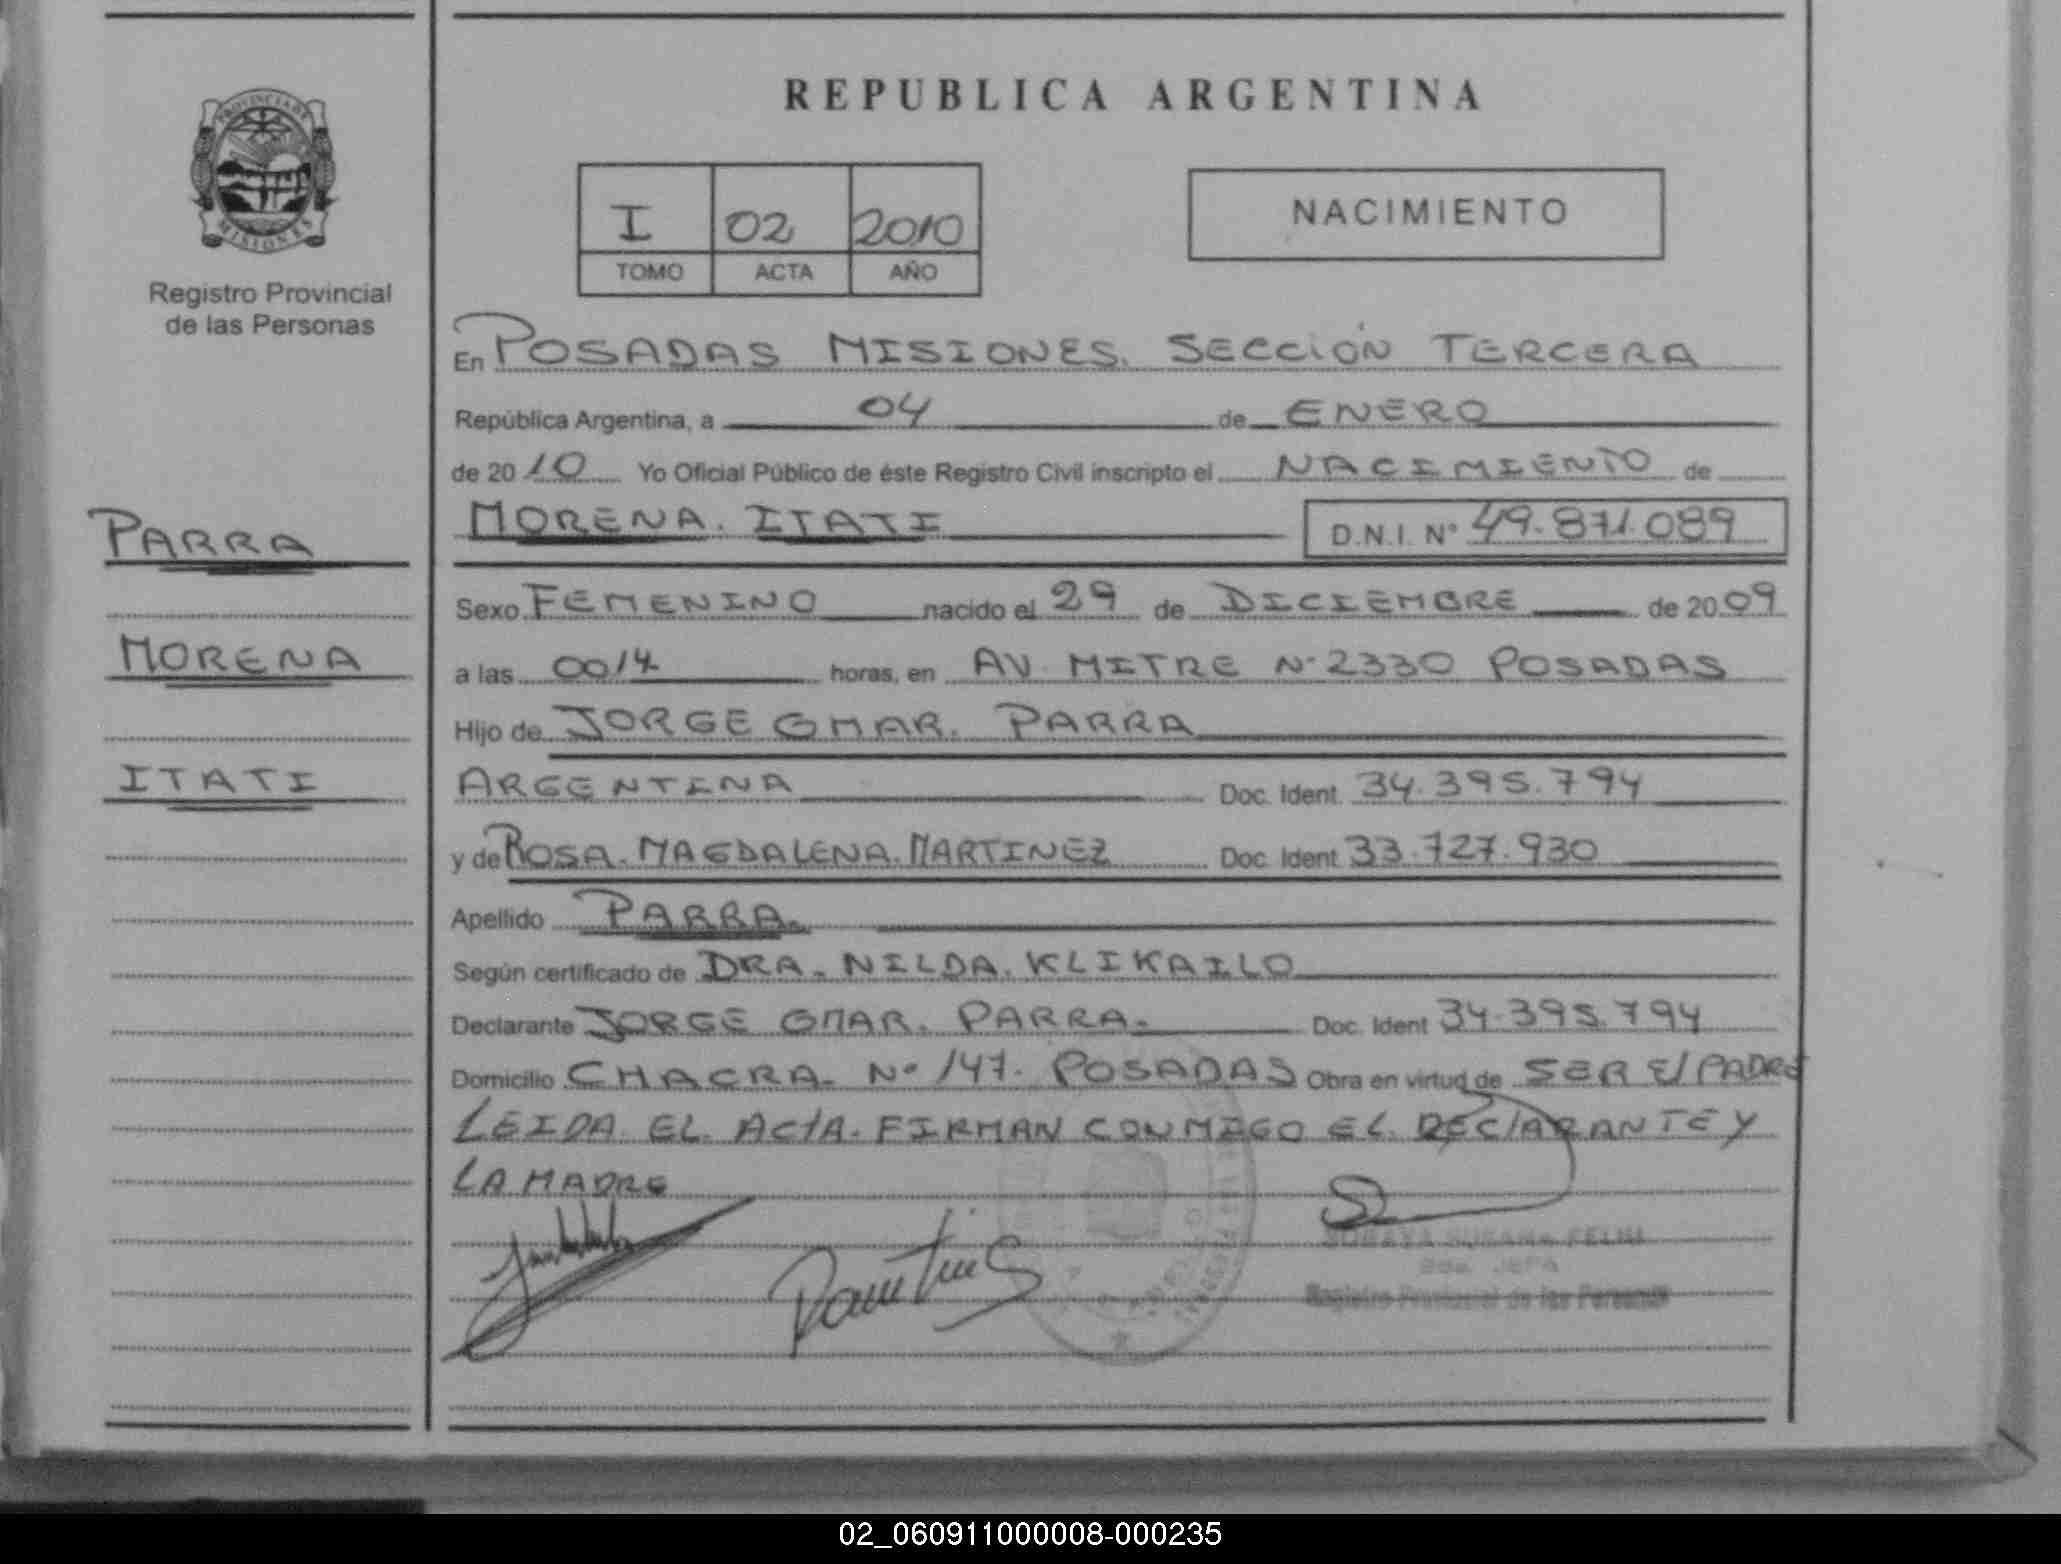 REPUBLICA ARGENTINA
PROVINCIA DE
MISIONES
Registro Provincial
de las Personas
I 02 2010
TOMO ACTA AÑO
NACIMIENTO
En POSADAS MISIONES. SECCIÓN TERCERA
República Argentina, a 04 de ENERO
de 20 10 Yo Oficial Público de éste Registro Civil inscripto el NACIMIENTO de
PARRA
MORENA
ITATI
MORENA. ITATI D.N.I. Nº 49.871.089
Sexo FEMENINO nacido el 29 de DICIEMBRE de 20 09
a las 0014 horas, en AV. MITRE Nº 2330 POSADAS
Hijo de JORGE OMAR. PARRA
ARGENTINA Doc. Ident. 34.395.794
y de ROSA. MAGDALENA. MARTINEZ Doc. Ident. 33.727.930
Apellido PARRA.
Según certificado de DRA. NILDA. KLIKAILO
Declarante JORGE OMAR. PARRA. Doc. Ident 34.395.794
Domicilio CHACRA. Nº 147. POSADAS Obra en virtud de SER El PADRE
LEIDA. EL. ACTA. FIRMAN CONMIGO EL. DEClARANTE Y
LA MADRE
SORAYA SUSANA FELIU
JEFA
Registro Provincial de las Personas
02_060911000008-000235